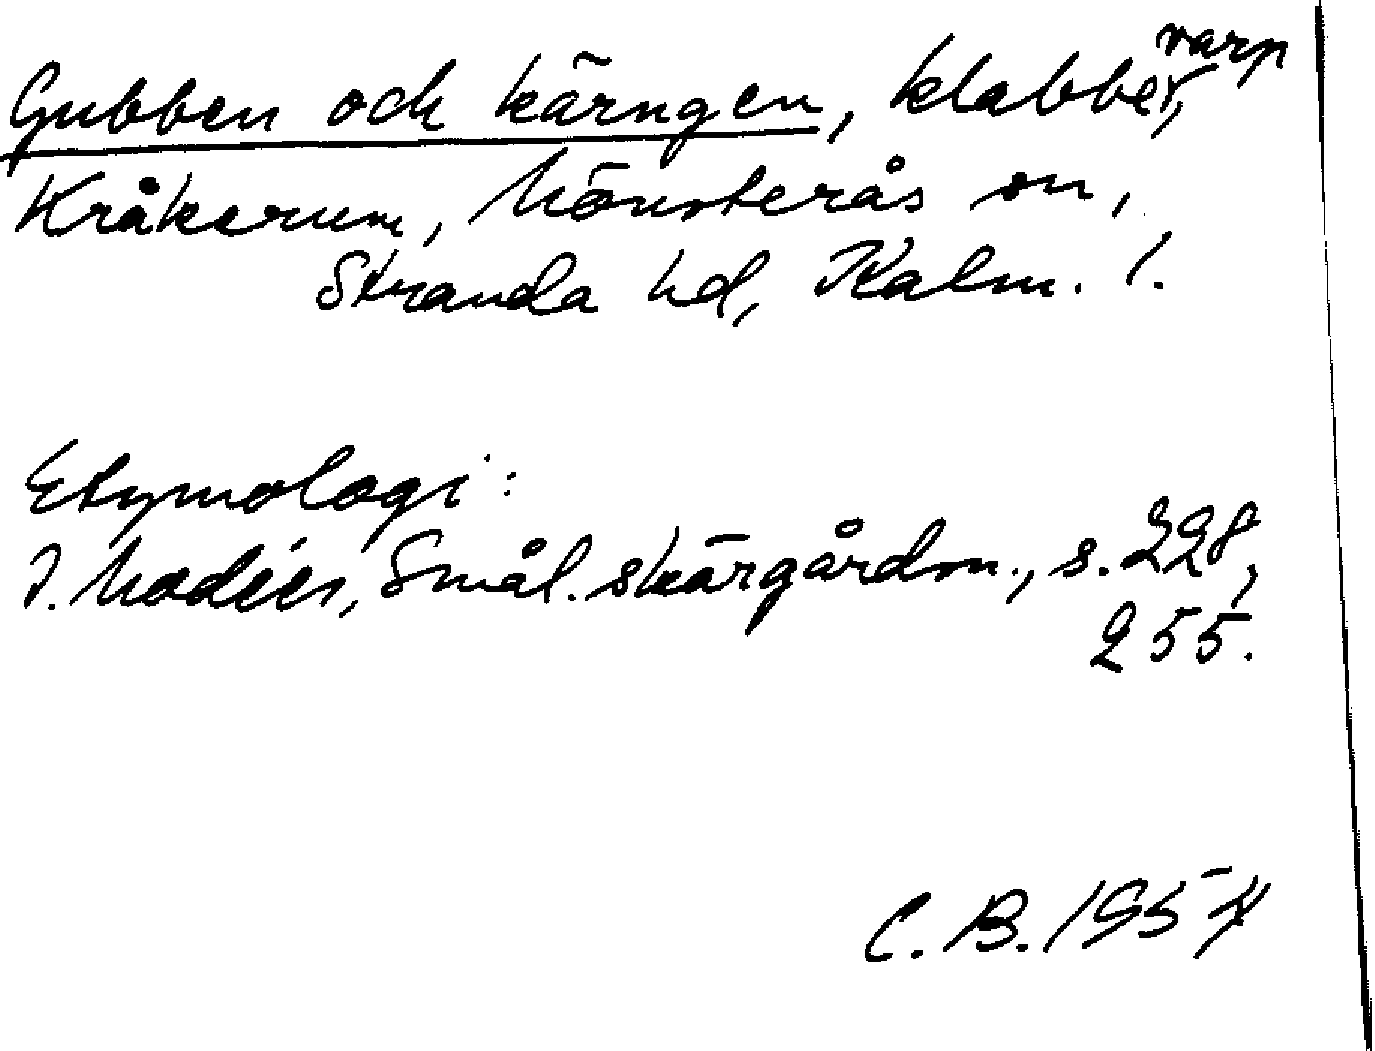 varp
Gubben och kärngen, klabber,
Kråkerum, Mönsterås sn,
Stranda hd, Kalm. l.
Etymologi:
I. Modéer, Smål. skärgårdsn., s. 228,
255.
C. B. 1954